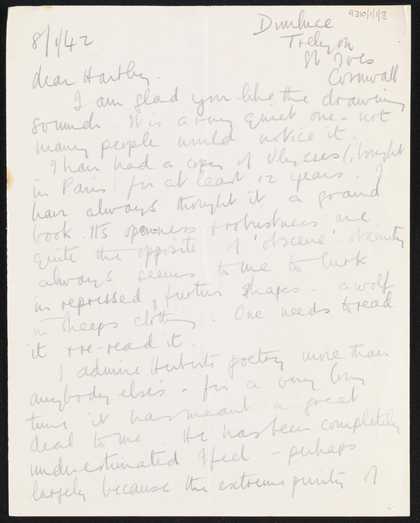 9310/1/1/2
Dunluce
Trelyon
St Ives
Cornwall
8/1/42
dear Hartley.
I am glad you like the drawing
sounds It is a very quiet one - not
many people would notice it.
I have had a copy of Ulysses (bought
in Paris) for at least 12 years. I
have always thought it a grand
book. Its openness & robustness are
quite the opposite of 'obscene' obscenity
always seems to me to lurk
in repressed, furtive shapes - a wolf
in sheeps clothing. One needs to read
it & re-read it.
I admire Herberts poetry more than
anybody elses - for a very long
time it has meant a great
deal to me He has been completely
underestimated I feel - perhaps
largely because the extreme purity of